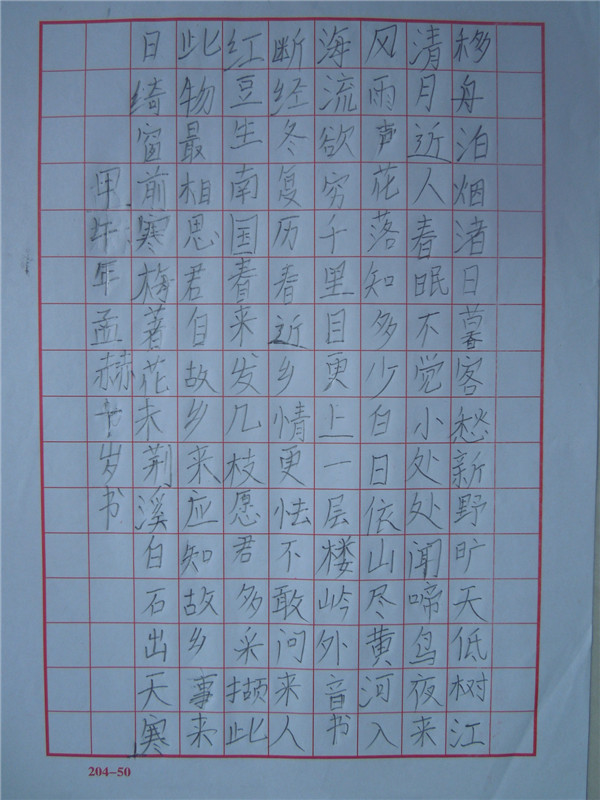 移舟泊烟渚日暮客愁新野旷天低树江
清月近人春眠不觉小处处闻啼鸟夜来
风雨声花落知多少白日依山尽黄河入
海流欲穷千里目更上一层楼岭外音书
断经冬复历春近乡情更怯不敢问来人
红豆生南国春来发几枝愿君多采撷此
此物最相思君自故乡来应知故乡事来
日绮窗前寒梅著花未荆溪白石出天寒
甲午年孟赫十岁书
204-50